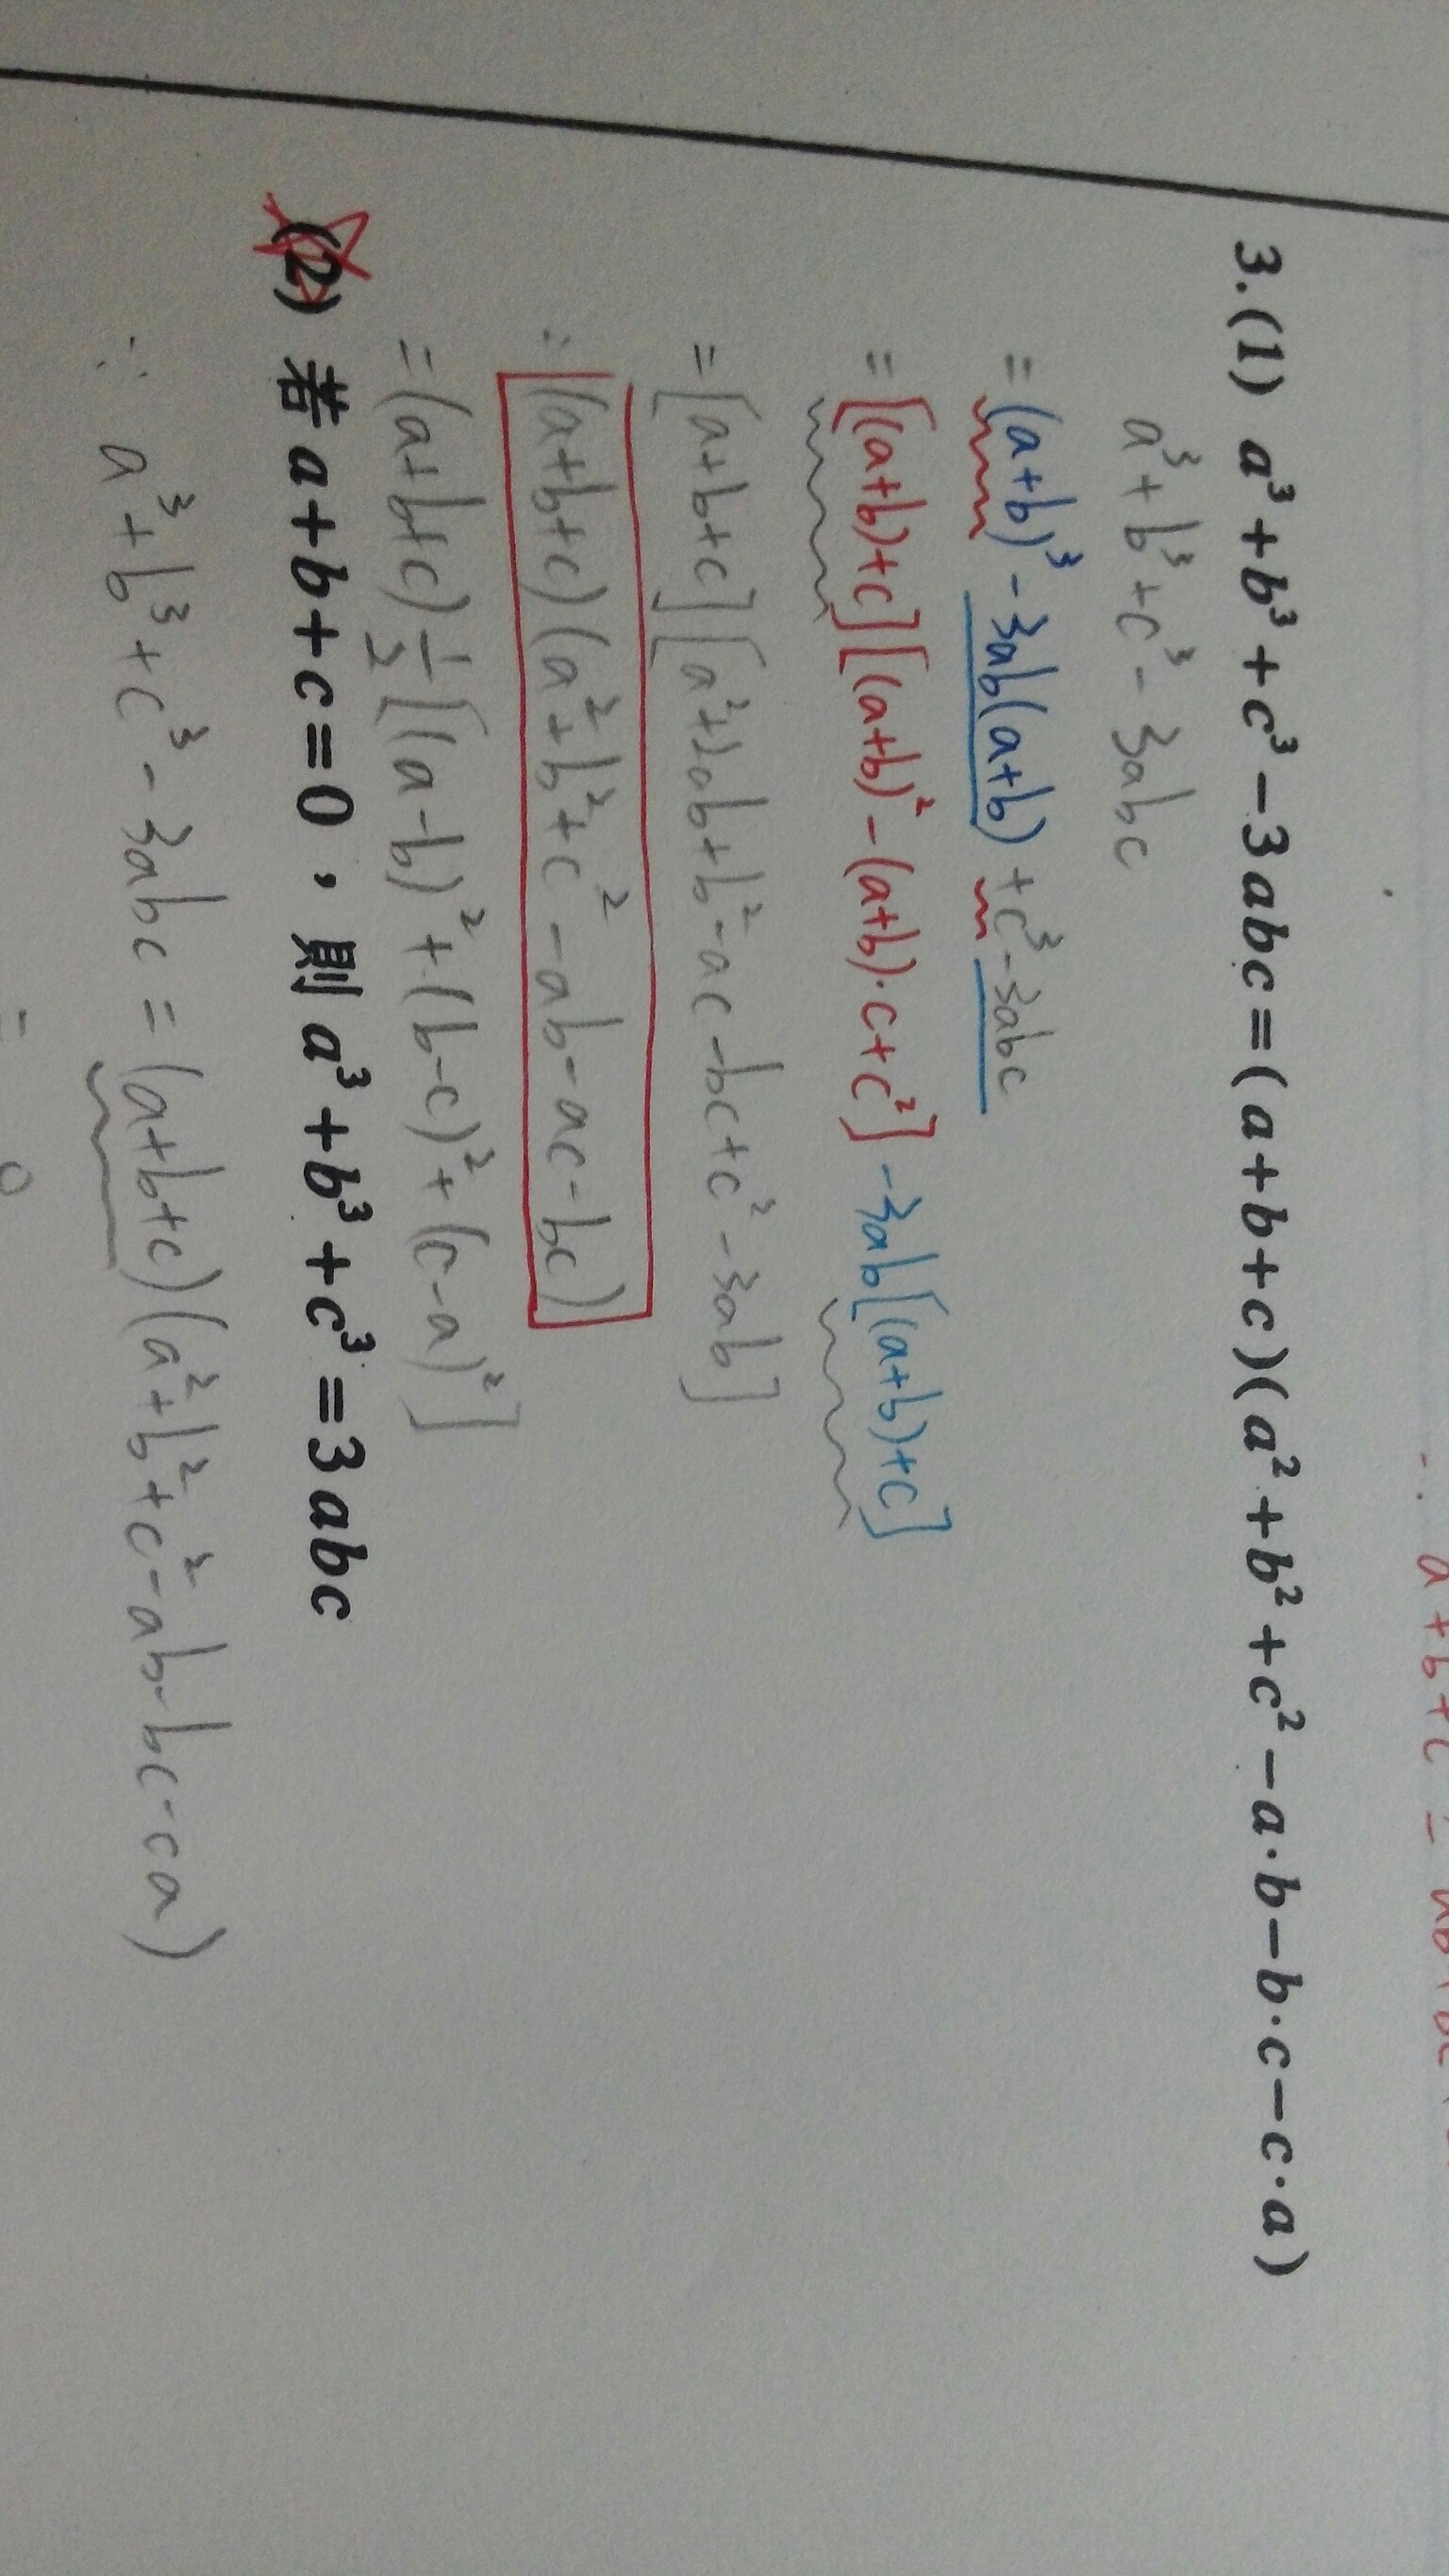 ∴ a+b+c =
3.(1) a³+b³+c³−3abc=(a+b+c)(a²+b²+c²−a·b−b·c−c·a)
a³+b³+c³-3abc
=(a+b)³-3ab(a+b)+c³-3abc
=[(a+b)+c][(a+b)²-(a+b)·c+c²]-3ab[(a+b)+c]
=[a+b+c][a²+2ab+b²-ac-bc+c²-3ab]
=(a+b+c)(a²+b²+c²-ab-ac-bc)
=(a+b+c)½[(a-b)²+(b-c)²+(c-a)²]
(2) 若a+b+c=0，則a³+b³+c³=3abc
∴ a³+b³+c³-3abc=(a+b+c)(a²+b²+c²-ab-bc-ca)
= 0